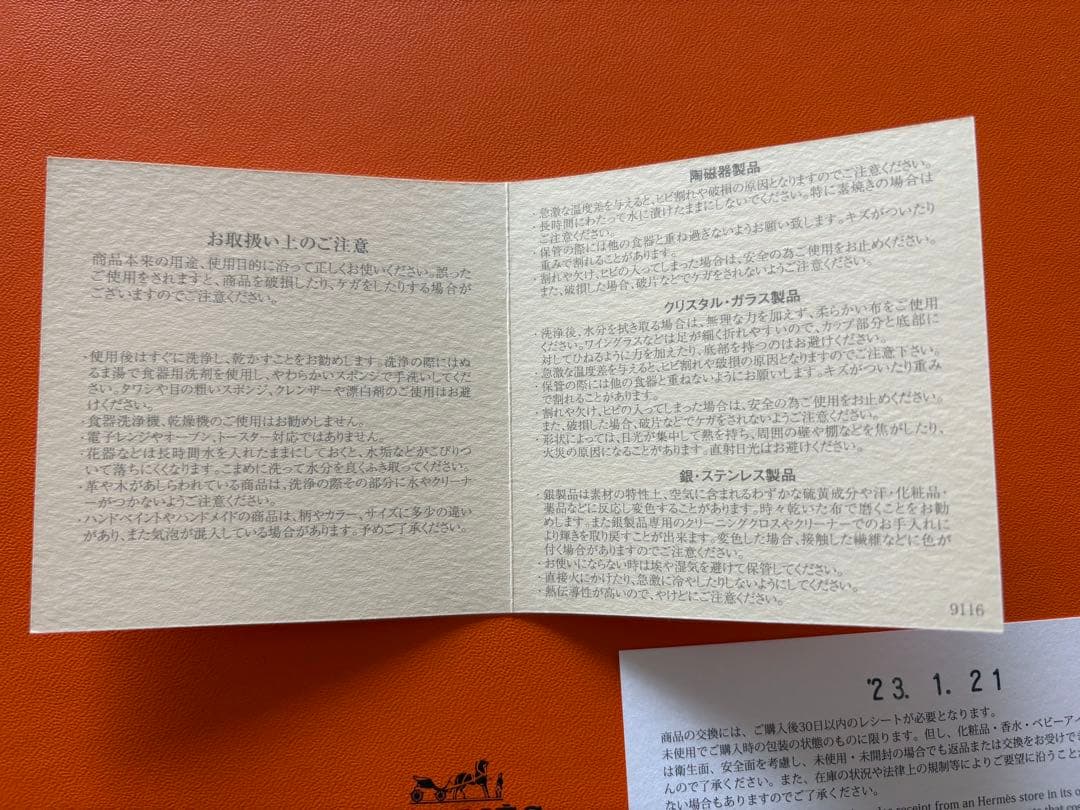 お取扱い上のご注意
商品本来の用途、使用目的に沿って正しくお使いください。誤った
ご使用をされますと、商品を破損したり、ケガをしたりする場合が
ございますのでご注意ください。
・使用後はすぐに洗浄し、乾かすことをお勧めします。洗浄の際にはぬ
るま湯で食器用洗剤を使用し、やわらかいスポンジで手洗いしてくだ
さい。タワシや目の粗いスポンジ、クレンザーや漂白剤のご使用はお避
けください。
・食器洗浄機、乾燥機のご使用はお勧めしません。
・電子レンジやオーブン、トースター対応ではありません。
・花器などは長時間水を入れたままにしておくと、水垢などがこびりつ
いて落ちにくくなります。こまめに洗って水分を良くふき取ってください。
・革や木があしらわれている商品は、洗浄の際その部分に水やクリーナ
ーがつかないようご注意ください。
・ハンドペイントやハンドメイドの商品は、柄やカラー、サイズに多少の違い
があり、また気泡が混入している場合があります。予めご了承ください。
陶磁器製品
・急激な温度差を与えると、ヒビ割れや破損の原因となりますのでご注意ください。
・長時間にわたって水に漬けたままにしないでください。特に素焼きの場合は
ご注意ください。
・保管の際には他の食器と重ね過ぎないようお願い致します。キズがついたり
重みで割れることがあります。
・割れや欠け、ヒビの入ってしまった場合は、安全の為ご使用をお止めください。
また、破損した場合、破片などでケガをされないようご注意ください。
クリスタル・ガラス製品
・洗浄後、水分を拭き取る場合は、無理な力を加えず、柔らかい布をご使用
ください。ワイングラスなどは足が細く折れやすいので、カップ部分と底部に
対してひねるように力を加えたり、底部を持つのはお避けください。
・急激な温度差を与えると、ヒビ割れや破損の原因となりますのでご注意下さい。
・保管の際には他の食器と重ねないようにお願いします。キズがついたり重み
で割れることがあります。
・割れや欠け、ヒビの入ってしまった場合は、安全の為ご使用をお止めください。
また、破損した場合、破片などでケガをされないようご注意ください。
・形状によっては、日光が集中して熱を持ち、周囲の壁や棚などを焦がしたり、
火災の原因になることがあります。直射日光はお避けください。
銀・ステンレス製品
・銀製品は素材の特性上、空気に含まれるわずかな硫黄成分や汗・化粧品・
薬品などに反応し変色することがあります。時々乾いた布で磨くことをお勧
めします。また銀製品専用のクリーニングクロスやクリーナーでのお手入れに
より輝きを取り戻すことが出来ます。変色した場合、接触した繊維などに色が
付く場合がありますのでご注意ください。
・お使いにならない時は埃や湿気を避けて保管してください。
・直接火にかけたり、急激に冷やしたりしないようにしてください。
・熱伝導性が高いので、やけどにご注意ください。
9116
'23. 1. 21
商品の交換には、ご購入後30日以内のレシートが必要となります。
未使用でご購入時の包装の状態のものに限ります。但し、化粧品・香水・ベビーアイ
は衛生面、安全面を考慮し、未使用・未開封の場合でも返品または交換をお受けでき
んので了承ください。また、在庫の状況や法律上の規制等によりご要望に沿うことが
ない場合もありますのでご了承ください。
receipt from an Hermès store in its o